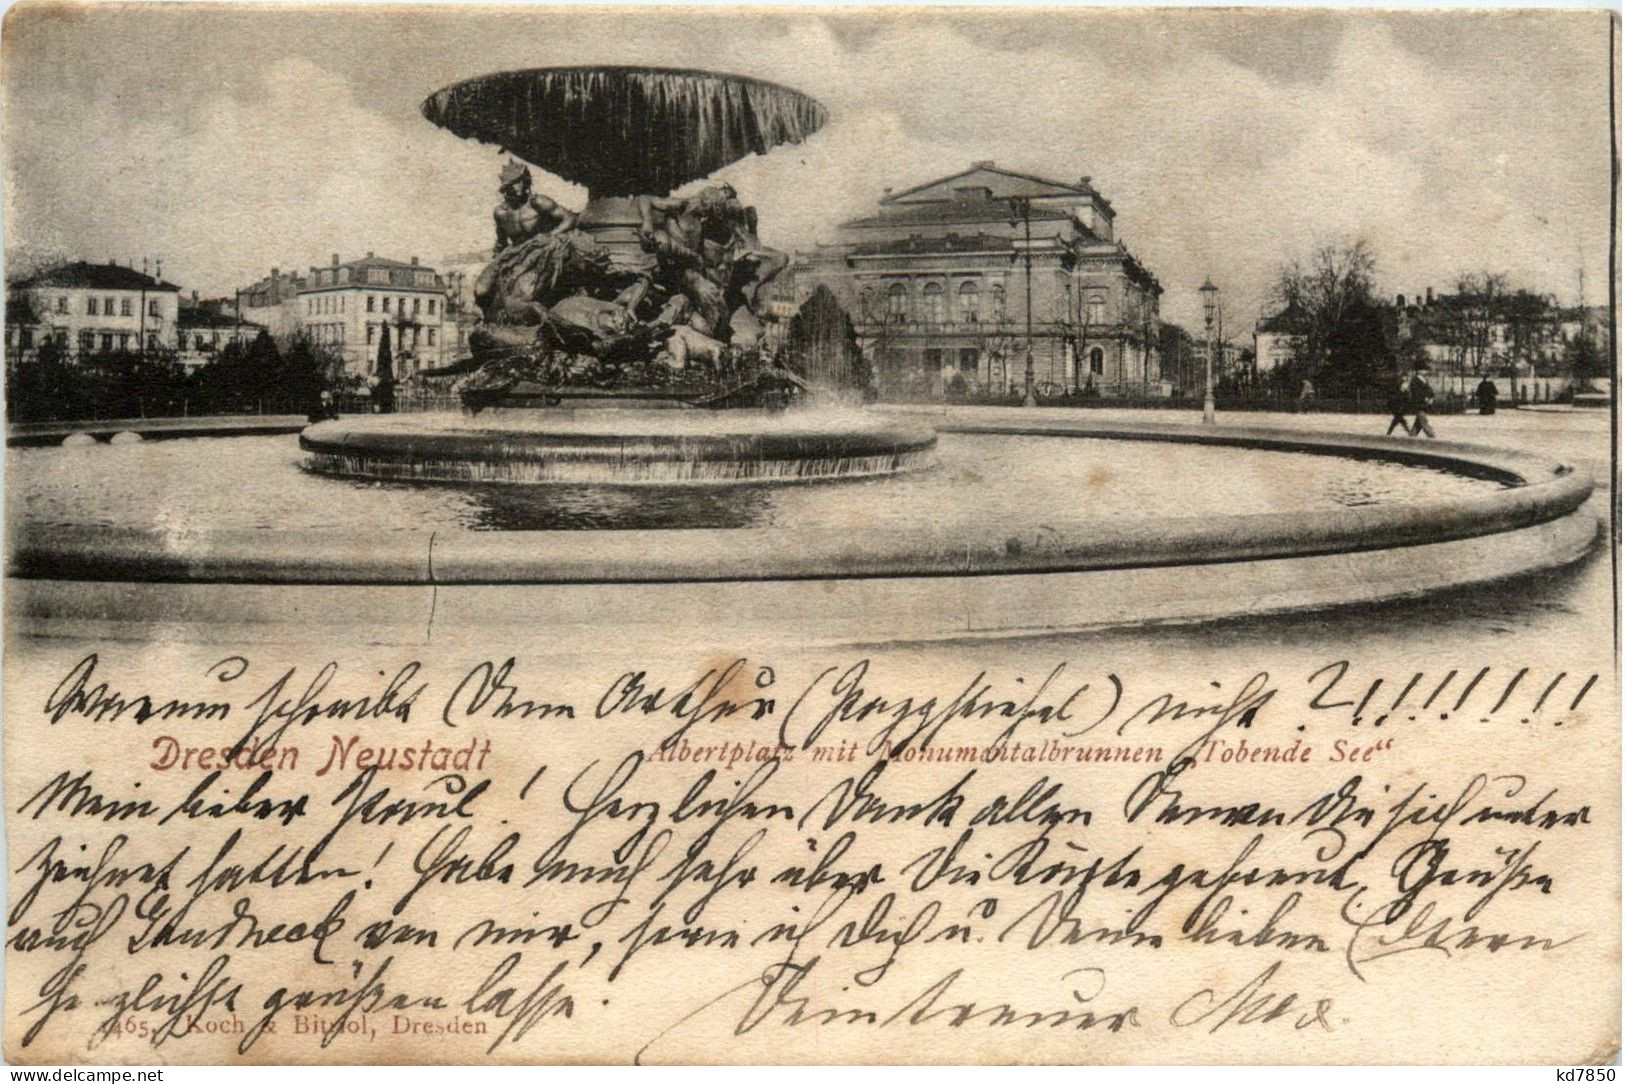 Warum schreibt Denn Arthur ( ) nicht ?!!!!!!!
Dresden Neustadt
Albertplatz mit Monumentalbrunnen „Tobende See“
Mein lieber Paul! Herzlichen Dank allen Denen die sich unter
zeichnet hatten! Habe mich sehr über die Karte gefreut, Grüße
auch von mir, sowie ich Dich u. Deine lieben Eltern
herzlichst grüßen lasse.
Dein treuer Max.
465, Koch & Bitriol, Dresden
kd7850